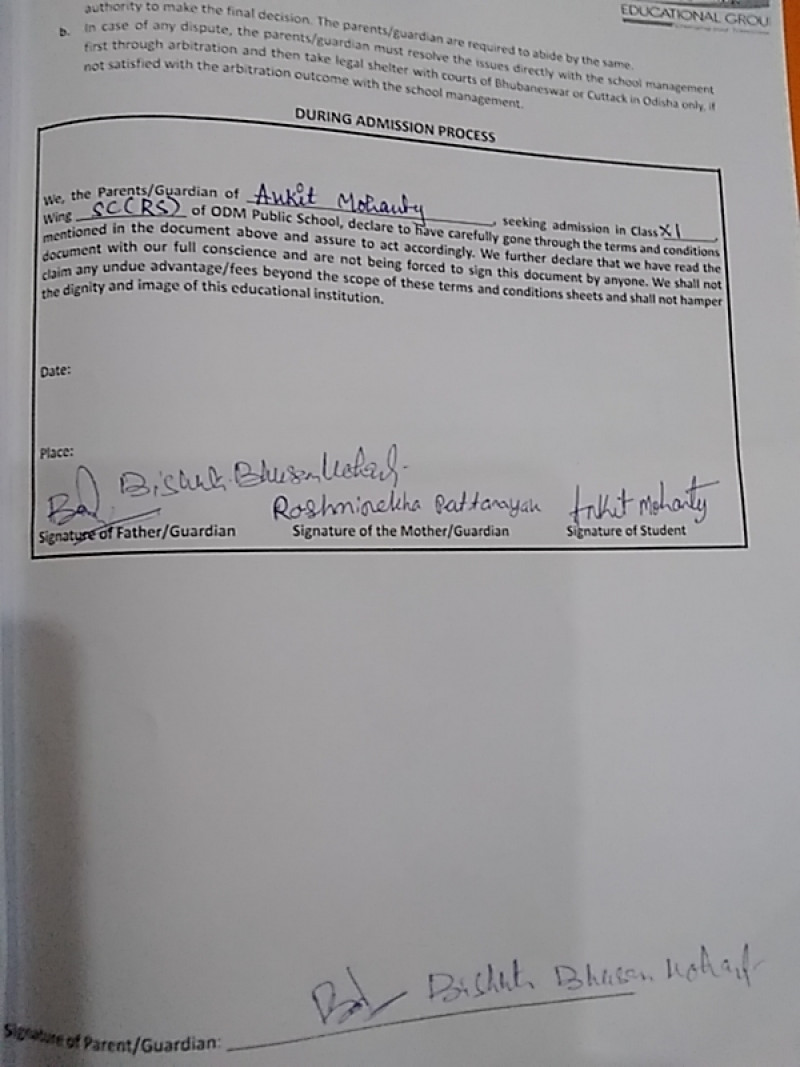 EDUCATIONAL GROU
authority to make the final decision. The parents/guardian are required to abide by the same.
b. In case of any dispute, the parents/guardian must resolve the issues directly with the school management
first through arbitration and then take legal shelter with courts of Bhubaneswar or Cuttack in Odisha only, if
not satisfied with the arbitration outcome with the school management.
DURING ADMISSION PROCESS
We, the Parents/Guardian of Ankit Mohanty, seeking admission in Class XI,
Wing SC(RS) of ODM Public School, declare to have carefully gone through the terms and conditions
mentioned in the document above and assure to act accordingly. We further declare that we have read the
document with our full conscience and are not being forced to sign this document by anyone. We shall not
claim any undue advantage/fees beyond the scope of these terms and conditions sheets and shall not hamper
the dignity and image of this educational institution.
Date:
Place:
Bhusan
Roshmirekha Pattanayak Ankit Mohanty
Signature of Father/Guardian Signature of the Mother/Guardian Signature of Student
Bhusan
Signature of Parent/Guardian: